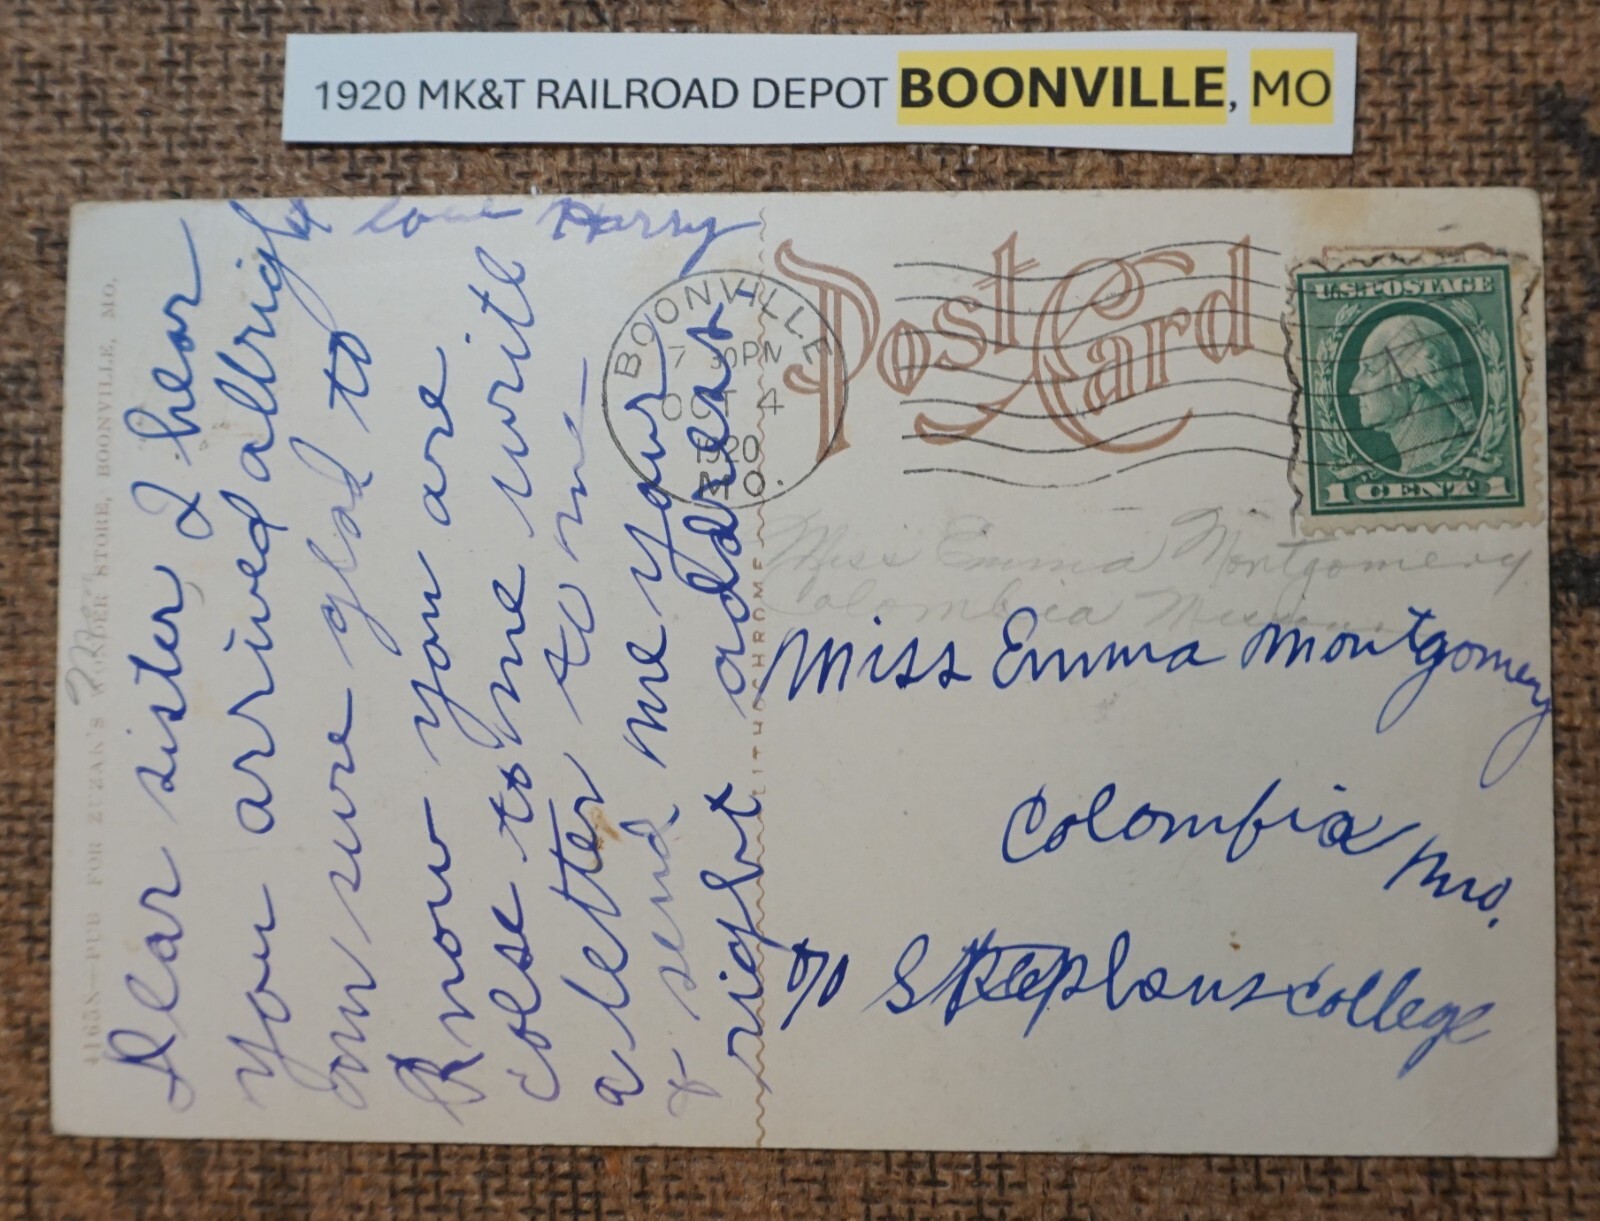 1920 MK&T RAILROAD DEPOT BOONVILLE, MO
Post Card
BOONVILLE
7 30PM
OCT 4
1920
MO.
U.S. POSTAGE
1 CENT 1
Miss Emma Montgomery
Colombia Missouri
Miss Emma Montgomery
Colombia Mo.
c/o Stephans College
LITHOCHROME
41658—PUB FOR ZUZAK'S WONDER STORE, BOONVILLE, MO.
Dear sister, I hear
you arrived allright
am sure glad to
know you are
colse to me write
a letter to me
& send me your
right addrest
love Harry